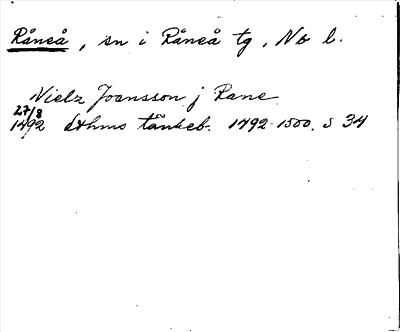 Råneå, sn i Råneå tg, Nb l.
Nielz Joensson j Rane
27/8
1492 Sthms tänkeb. 1492-1500. s 34